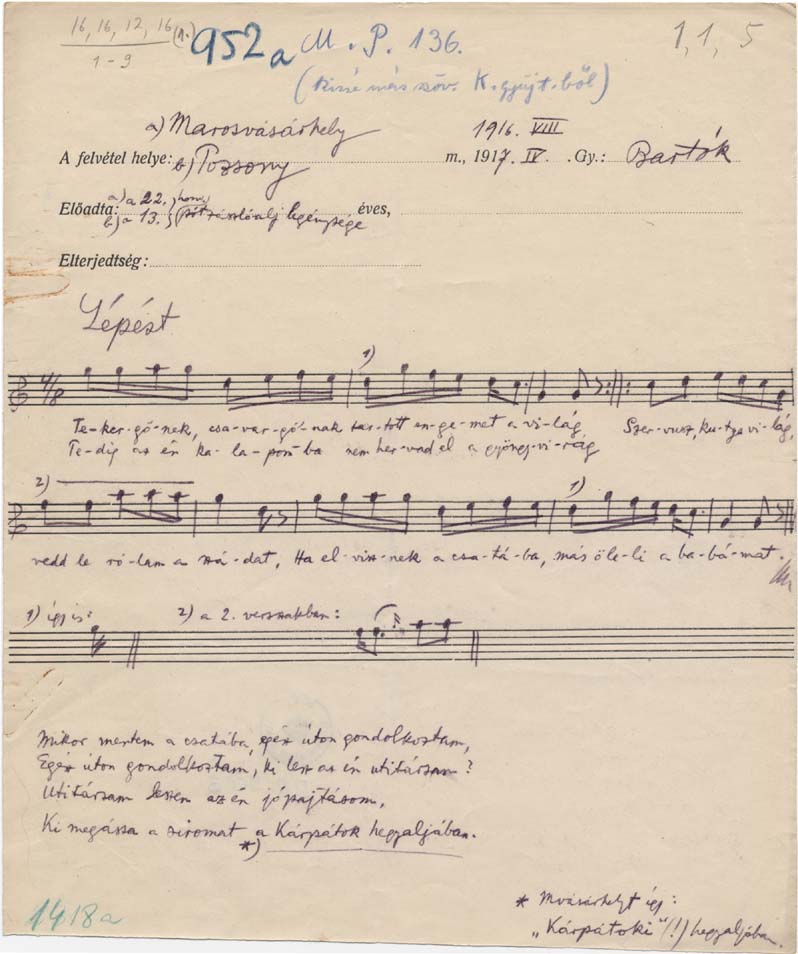 16, 16, 12, 16 (1.
1-9
952a M. P. 136.
1, 1, 5
(kissé más szöv. K. gyűjt.-ből)
a) Marosvásárhely
1916. VIII
A felvétel helye: b) Pozsony m., 1917. IV. Gy.: Bartók
Előadta: a) a 22. honv.
b) a 13. zászlóalj legénysége éves,
Elterjedtség:
Lépést
4/8
1)
Te-ker-gő-nek, csa-var-gó-nak tar-tott en-ge-met a vi-lág Szer-vusz, ku-tya vi-lág,
Pe-dig az én ka-la-pom-ba nem her-vad el a gyöngy-vi-rág
2)
1)
vedd le ró-lam a szá-dat, Ha el-visz-nek a csa-tá-ba, más öle-li a ba-bá-mat.
1) így is: 2) a 2. versszakban:
Mikor mentem a csatába, egész úton gondolkoztam,
Egész úton gondolkoztam, ki lesz az én utitársam?
Utitársam leszen az én jópajtásom,
Ki megássa a síromat a Kárpátok hegyaljában.
*)
1418a
* Mvásárhelyt így:
„Kárpátoki" (!) hegyaljában.